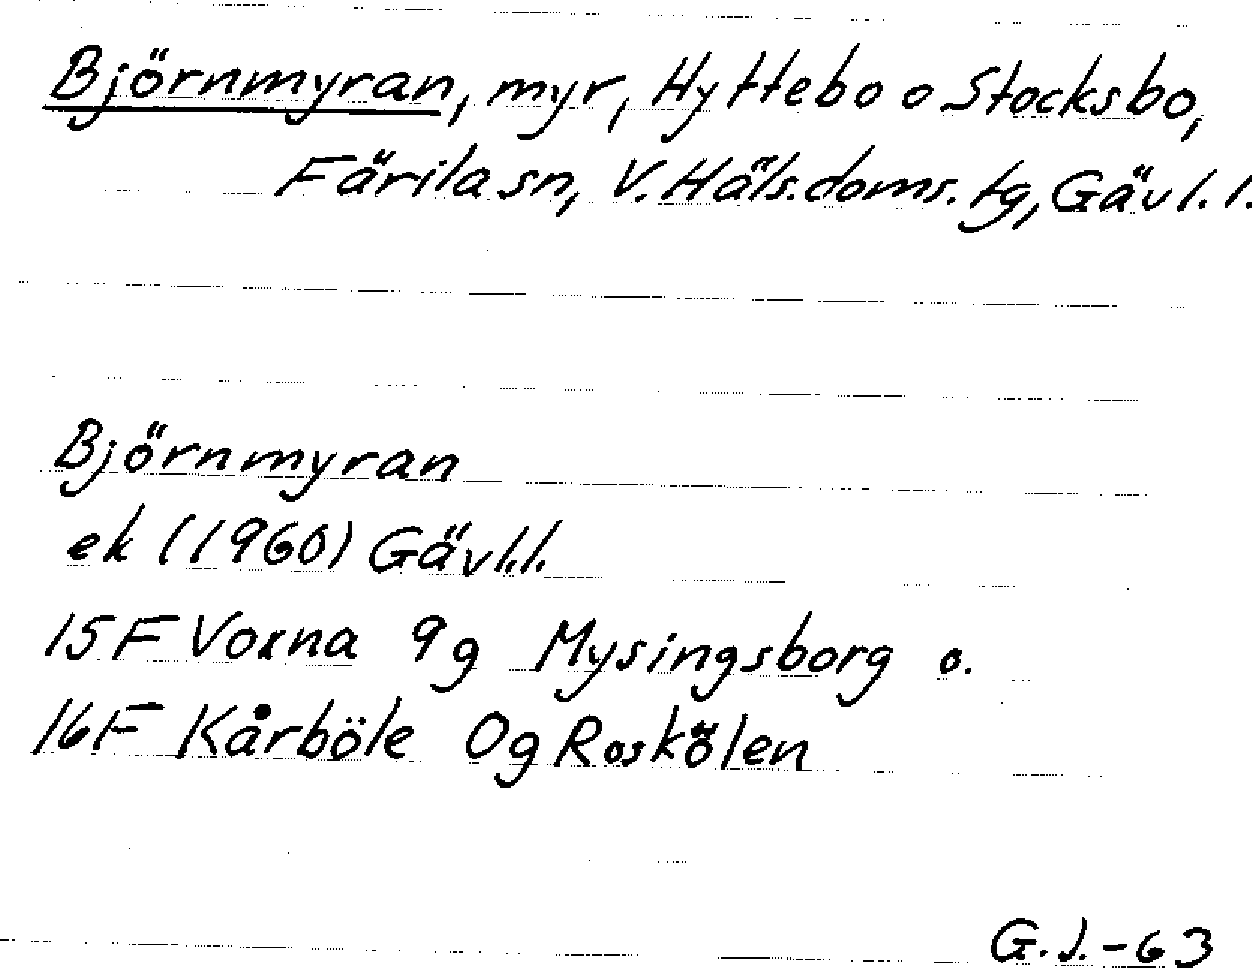 Björnmyran, myr, Hyttebo o Stocksbo,
Färila sn, V. Häls. doms. tg, Gävl. l.
Björnmyran
ek (1960) Gävl.l.
15F Voxna 9g Mysingsborg o.
16F Kårböle 0g Roskölen
G.J.-63